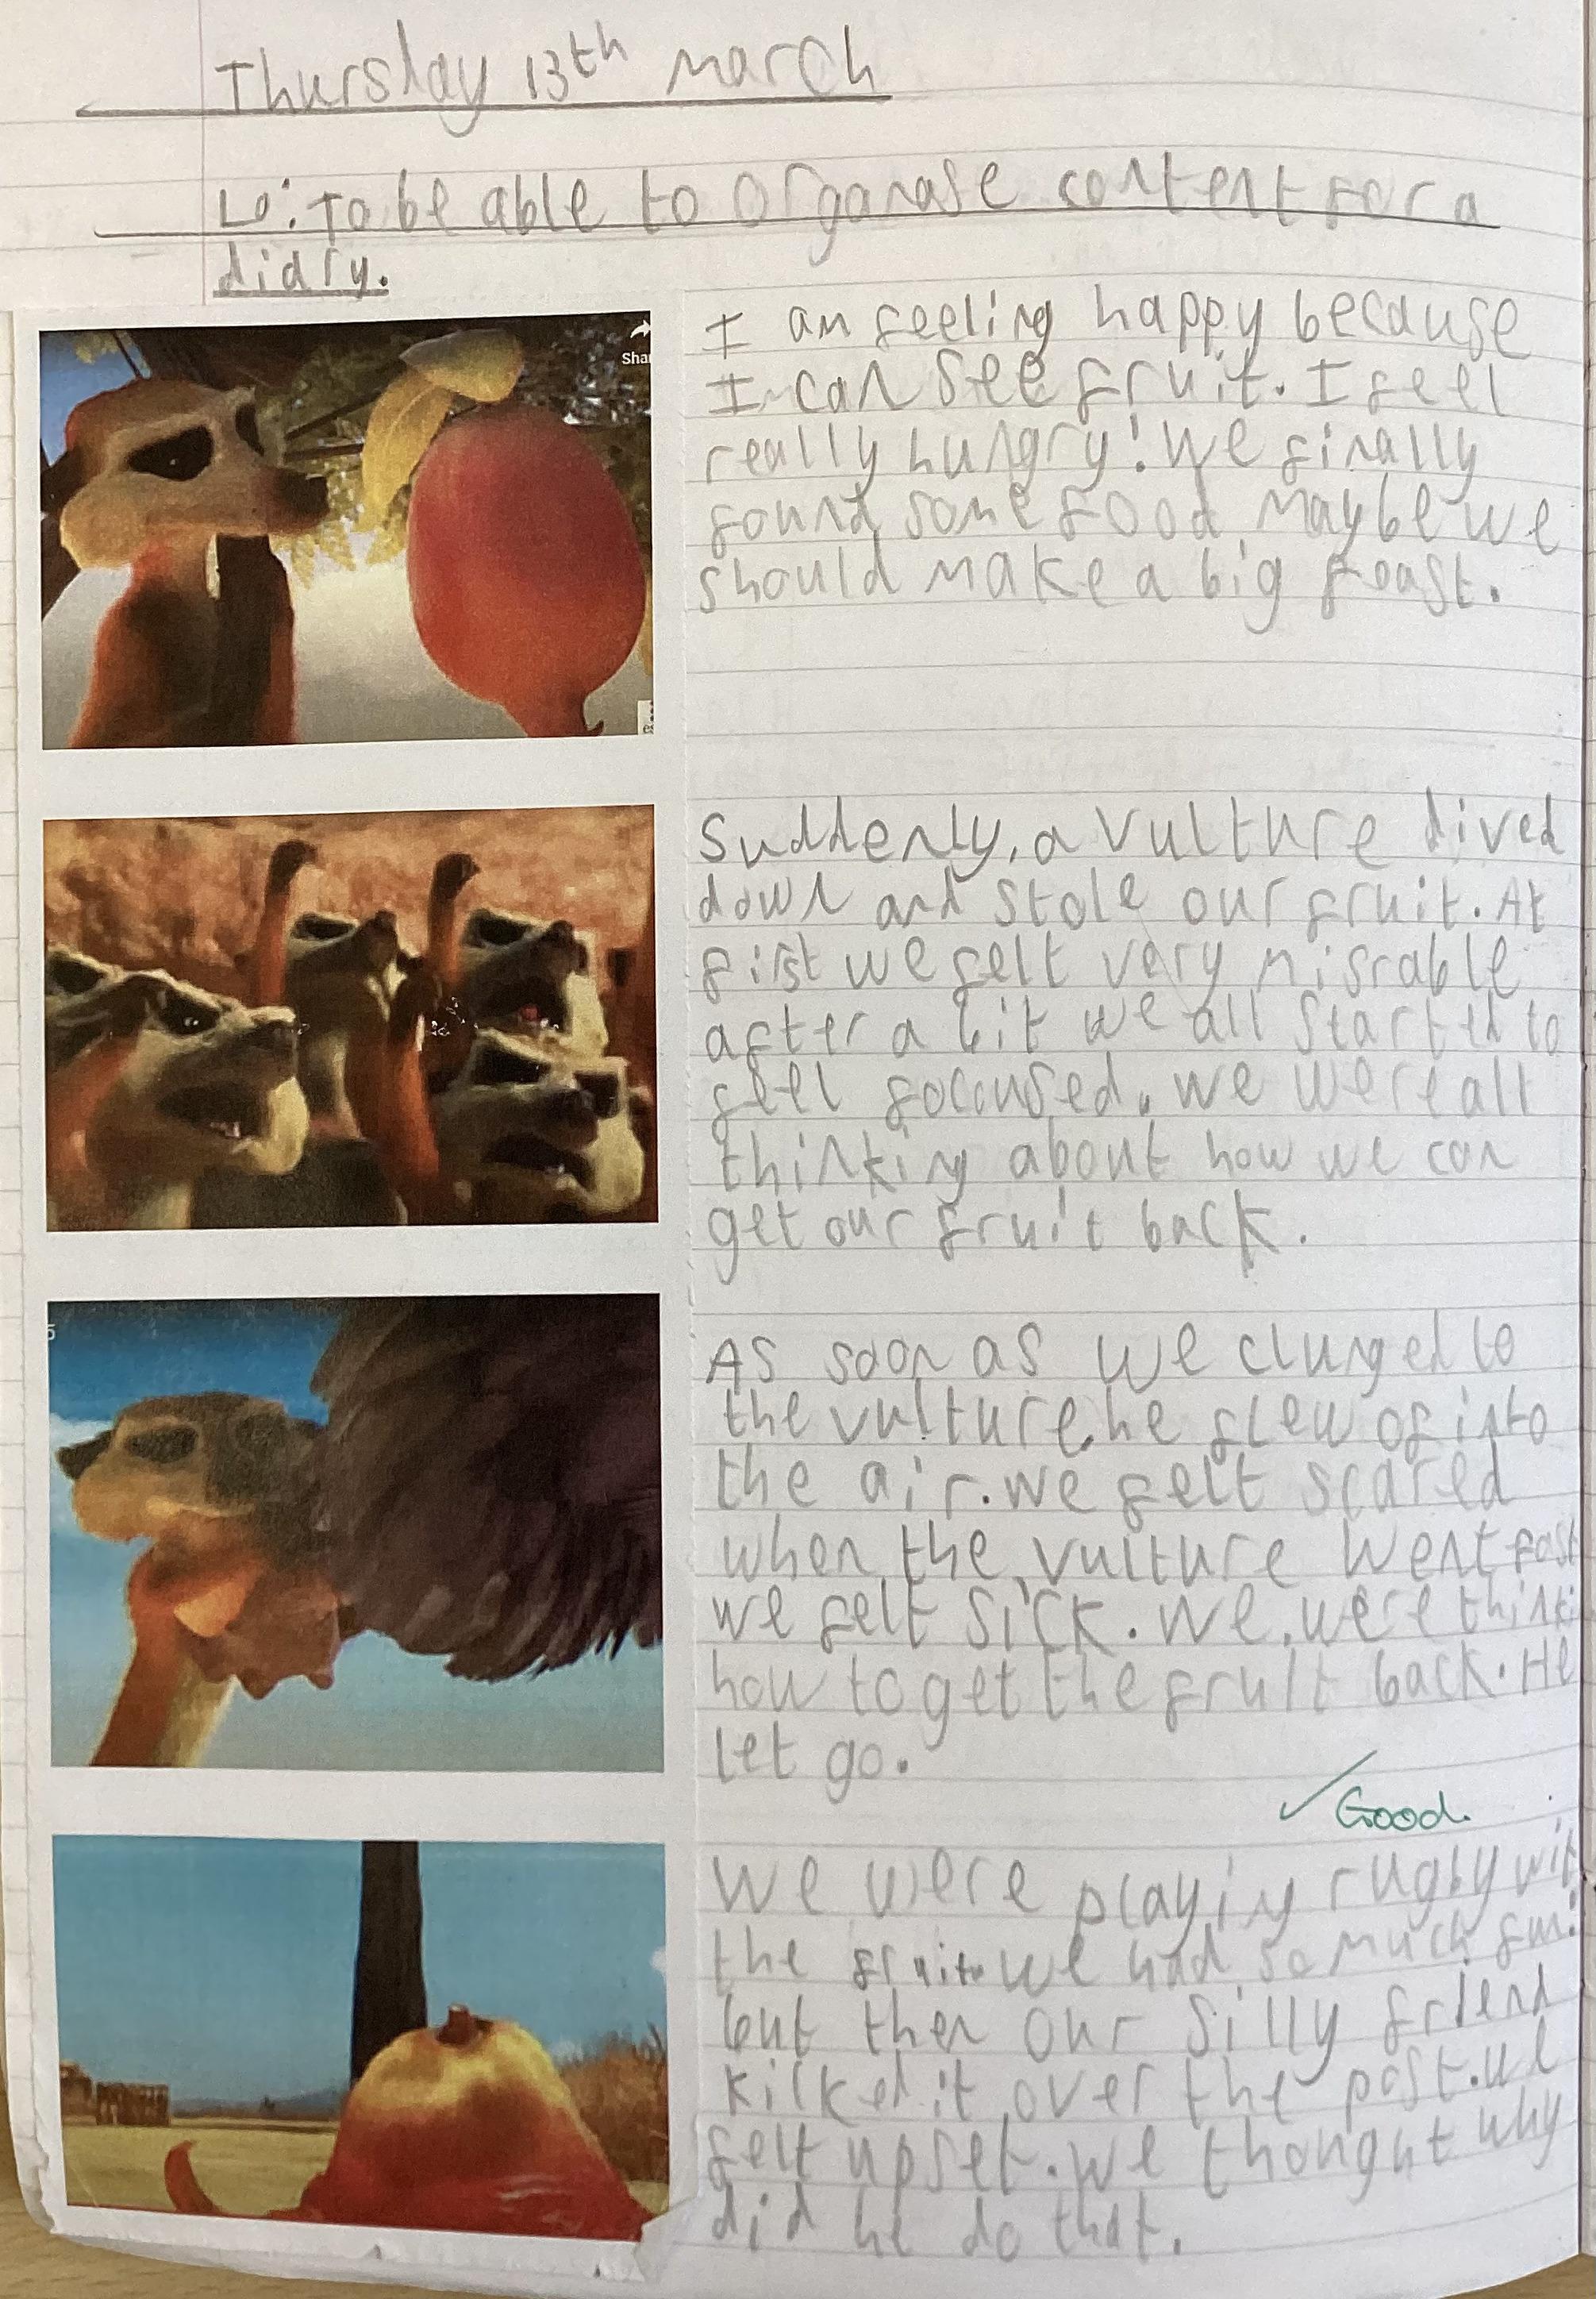 Thursday 13th march
Lo: To be able to organase content for a
diary.
Shar
I am feeling happy because
I can see fruit. I feel
really hungry! We finally
found some food maybe we
should make a big feast.
Suddenly, a vulture dived
down and stole our fruit. At
first we felt very misrable
after a bit we all started to
feel foccused. we were all
thinking about how we can
get our fruit back.
5
As soon as we clunged to
the vulture, he flew of into
the air. we felt scared
when the vulture went fast
we felt sick. We were
how to get the fruit back. He
let go.
✓ Good.
We were playing rugby
the fruit. we had so much fun!
but then our silly friend
kicked it over the post. we
felt upset. we thought why
did he do that.